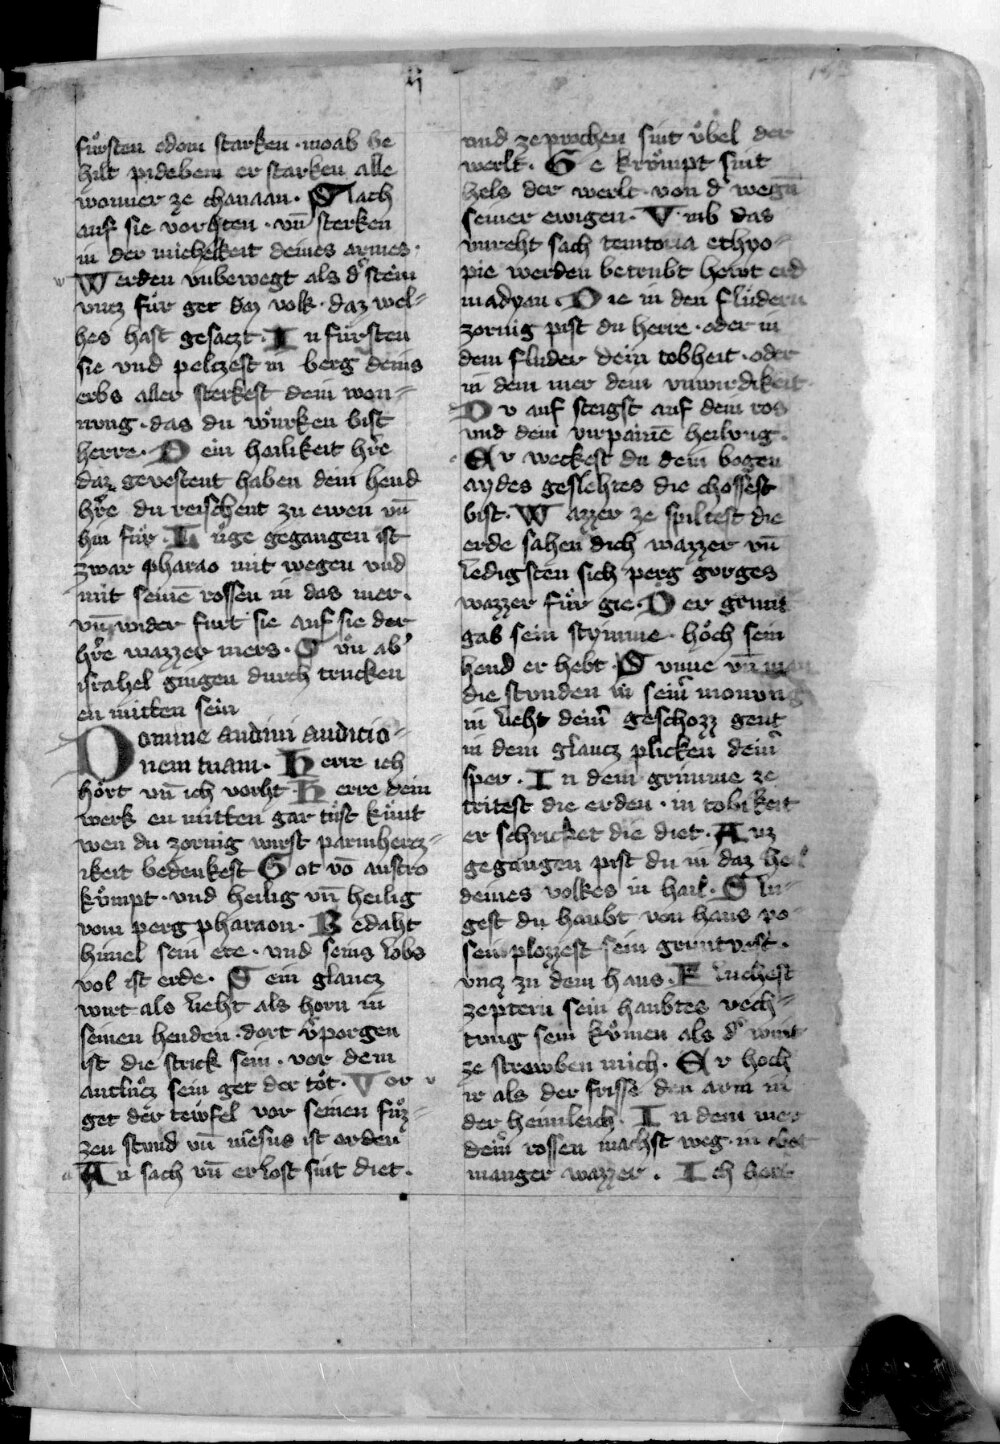 fuͤrsten edom starken · moab be
hilt pidebem er starken alle
wonner ze chanaan · Slach
auf sie vorhten · vn̄ sterken
in der michelkeit deines armes ·
Werden vnbewegt als dʼ stein
vncz fuͤr get daz volk · daz wel⸗
hes hast gesaczt · In fuͤrsten
sie vnd pelczest in berg deins
erbs aller sterkest dein won⸗
nvng · das du wuͤrken bist
herre · Dein heilikeit hr̄e
daz gevestent haben dein hend
hr̄e du reischent zu ewen vn̄
hin fuͤr · Luͤge gegangen ist
zwar pharao mit wegen vnd
mit seinē rossen in das mer ·
vn̄ wider furt sie auf sie der
hr̄e wazzer mers · Suͤn abʼ
israhel gingen durch trucken
en mitten sein
Domine audiui auditio⸗
nem tuam · Herre ich
hoͤrt vn̄ ich vorht Herre dein
werk en mitten gar tuͤst kuͤnt
wen du zornig wirst parmhercz⸗
ikeit bedenkest Got vō austro
kuͤmpt · vnd heilig vn̄ heilig
vom perg pharaon · Bedaht
himel sein ere · vnd seins lobs
vol ist erde · Sein glancz
wirt als lieht als horn in
seinen henden · dort v̊porgen
ist die strick sein · vor dem
antlucz sein get der toͤt · Vor
get der tewfel vor seinen fuͤz⸗
zen stund vn̄ mesus ist erden
An sach vn̄ erlost sint diet ·
vnd zeprochen sint vͤbel der
werlt · Gekruͤmpt sint
hels der werlt · von dʼ wegn̄
seiner ewigen · Vmb das
vnreht sach tentoria ethyo⸗
pie werden betrubt hewt erd
madyan Die in den fluͤdern
zornig pist du herre · oder in
dem fluder dein tobheit · oder
in dem mer dein vnwirdikeit
Du auf steigst auf dein ros
vnd dein virpainē heilvng ·
Er weckest du dein bogen
aydes geslehtes die chossest
bist · Wazzer ze spiltest die
erde sahen dich wazzer vn̄
ledigsten sich perg gorges
wazzer fuͤr gie · Der grunt
gab sein stymme · hoͤch sein
hend er hebt · Sunne vn̄ man
die stvnden in seinʼ monvng
in lieht deinʼ geschozz gent
in dem glancz plicken deinʼ
sper · In dem grimme ze
tritest die erden · in tobikeit
er schricket die diet · Auz
gegangen pist du in daz heil
deines volkes in hail · Slu⸗
gest du haubt von haus po⸗
sen plozzest sein gruntvest ·
vncz zu dem hals · Fluchest
zeptern sein haubtes vech⸗
tvng sein kuͤmen als dʼ wint
ze strewben mich · Er hoch
ir als der frisse den arm in
der heimleich · In dem mer
dein rossen machst weg · in
manger wazzer · Ich